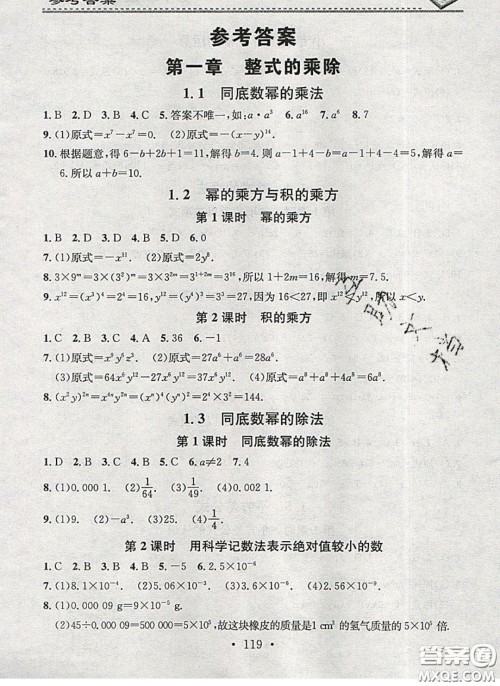 参考答案
参考答案
第一章 整式的乘除
1.1 同底数幂的乘法
1.B 2.D 3.B 4.C 5.答案不唯一,如:a·a³ 6.a¹⁶ 7.a⁶ 8.7
9.(1)原式=x⁷-x⁷=0. (2)原式=-(x-y)¹⁴.
10.根据题意,得6-b+2b+1=11,解得b=4.则a-1+4-b=a-1+4-4=5,解得a=
6.所以a+b=10.
1.2 幂的乘方与积的乘方
第1课时 幂的乘方
1.B 2.D 3.B 4.A 5.D 6.0
7.(1)原式=3x¹². (2)原式=2y⁸.
8.3×9ᵐ=3×(3²)ᵐ=3×3²ᵐ=3¹⁺²ᵐ=3¹⁶,所以1+2m=16,解得m=7.5.
9.x¹²=(x³)⁴=2⁴=16,y¹²=(y⁴)³=3³=27.因为16<27,即x¹²<y¹²,所以x<y.
第2课时 积的乘方
1.C 2.A 3.B 4.A 5.36 6.-1
7.(1)原式=x⁸y⁶z². (2)原式=27a⁶+a⁶=28a⁶.
(3)原式=64x⁶y¹²-27x⁶y¹²=37x⁶y¹².
8.(x²y)²ⁿ=x⁴ⁿy²ⁿ=(xⁿ)⁴(yⁿ)²=2⁴×3²=144.
1.3 同底数幂的除法
第1课时 同底数幂的除法
1.D 2.A 3.B 4.B 5.C 6.a≠2 7.4
8.(1)0.000 1. (2)1/64. (3)1/49. (4)0.002 1.
9.(1)9. (2)-a³. (3)1/4.
第2课时 用科学记数法表示绝对值较小的数
1.C 2.A 3.B 4.B 5.-5 6.2.5×10⁻⁶
7.(1)8.1×10⁻⁴. (2)5.06×10⁻³. (3)2.56×10⁻⁵. (4)2.56×10⁻⁹.
8.(1)0.000 09 g=9×10⁻⁵ g.
(2)45÷0.000 09=5×10⁵,故这块橡皮的质量是1 cm³的氢气质量的5×10⁵倍.
119
答案圈
MXQE.COM